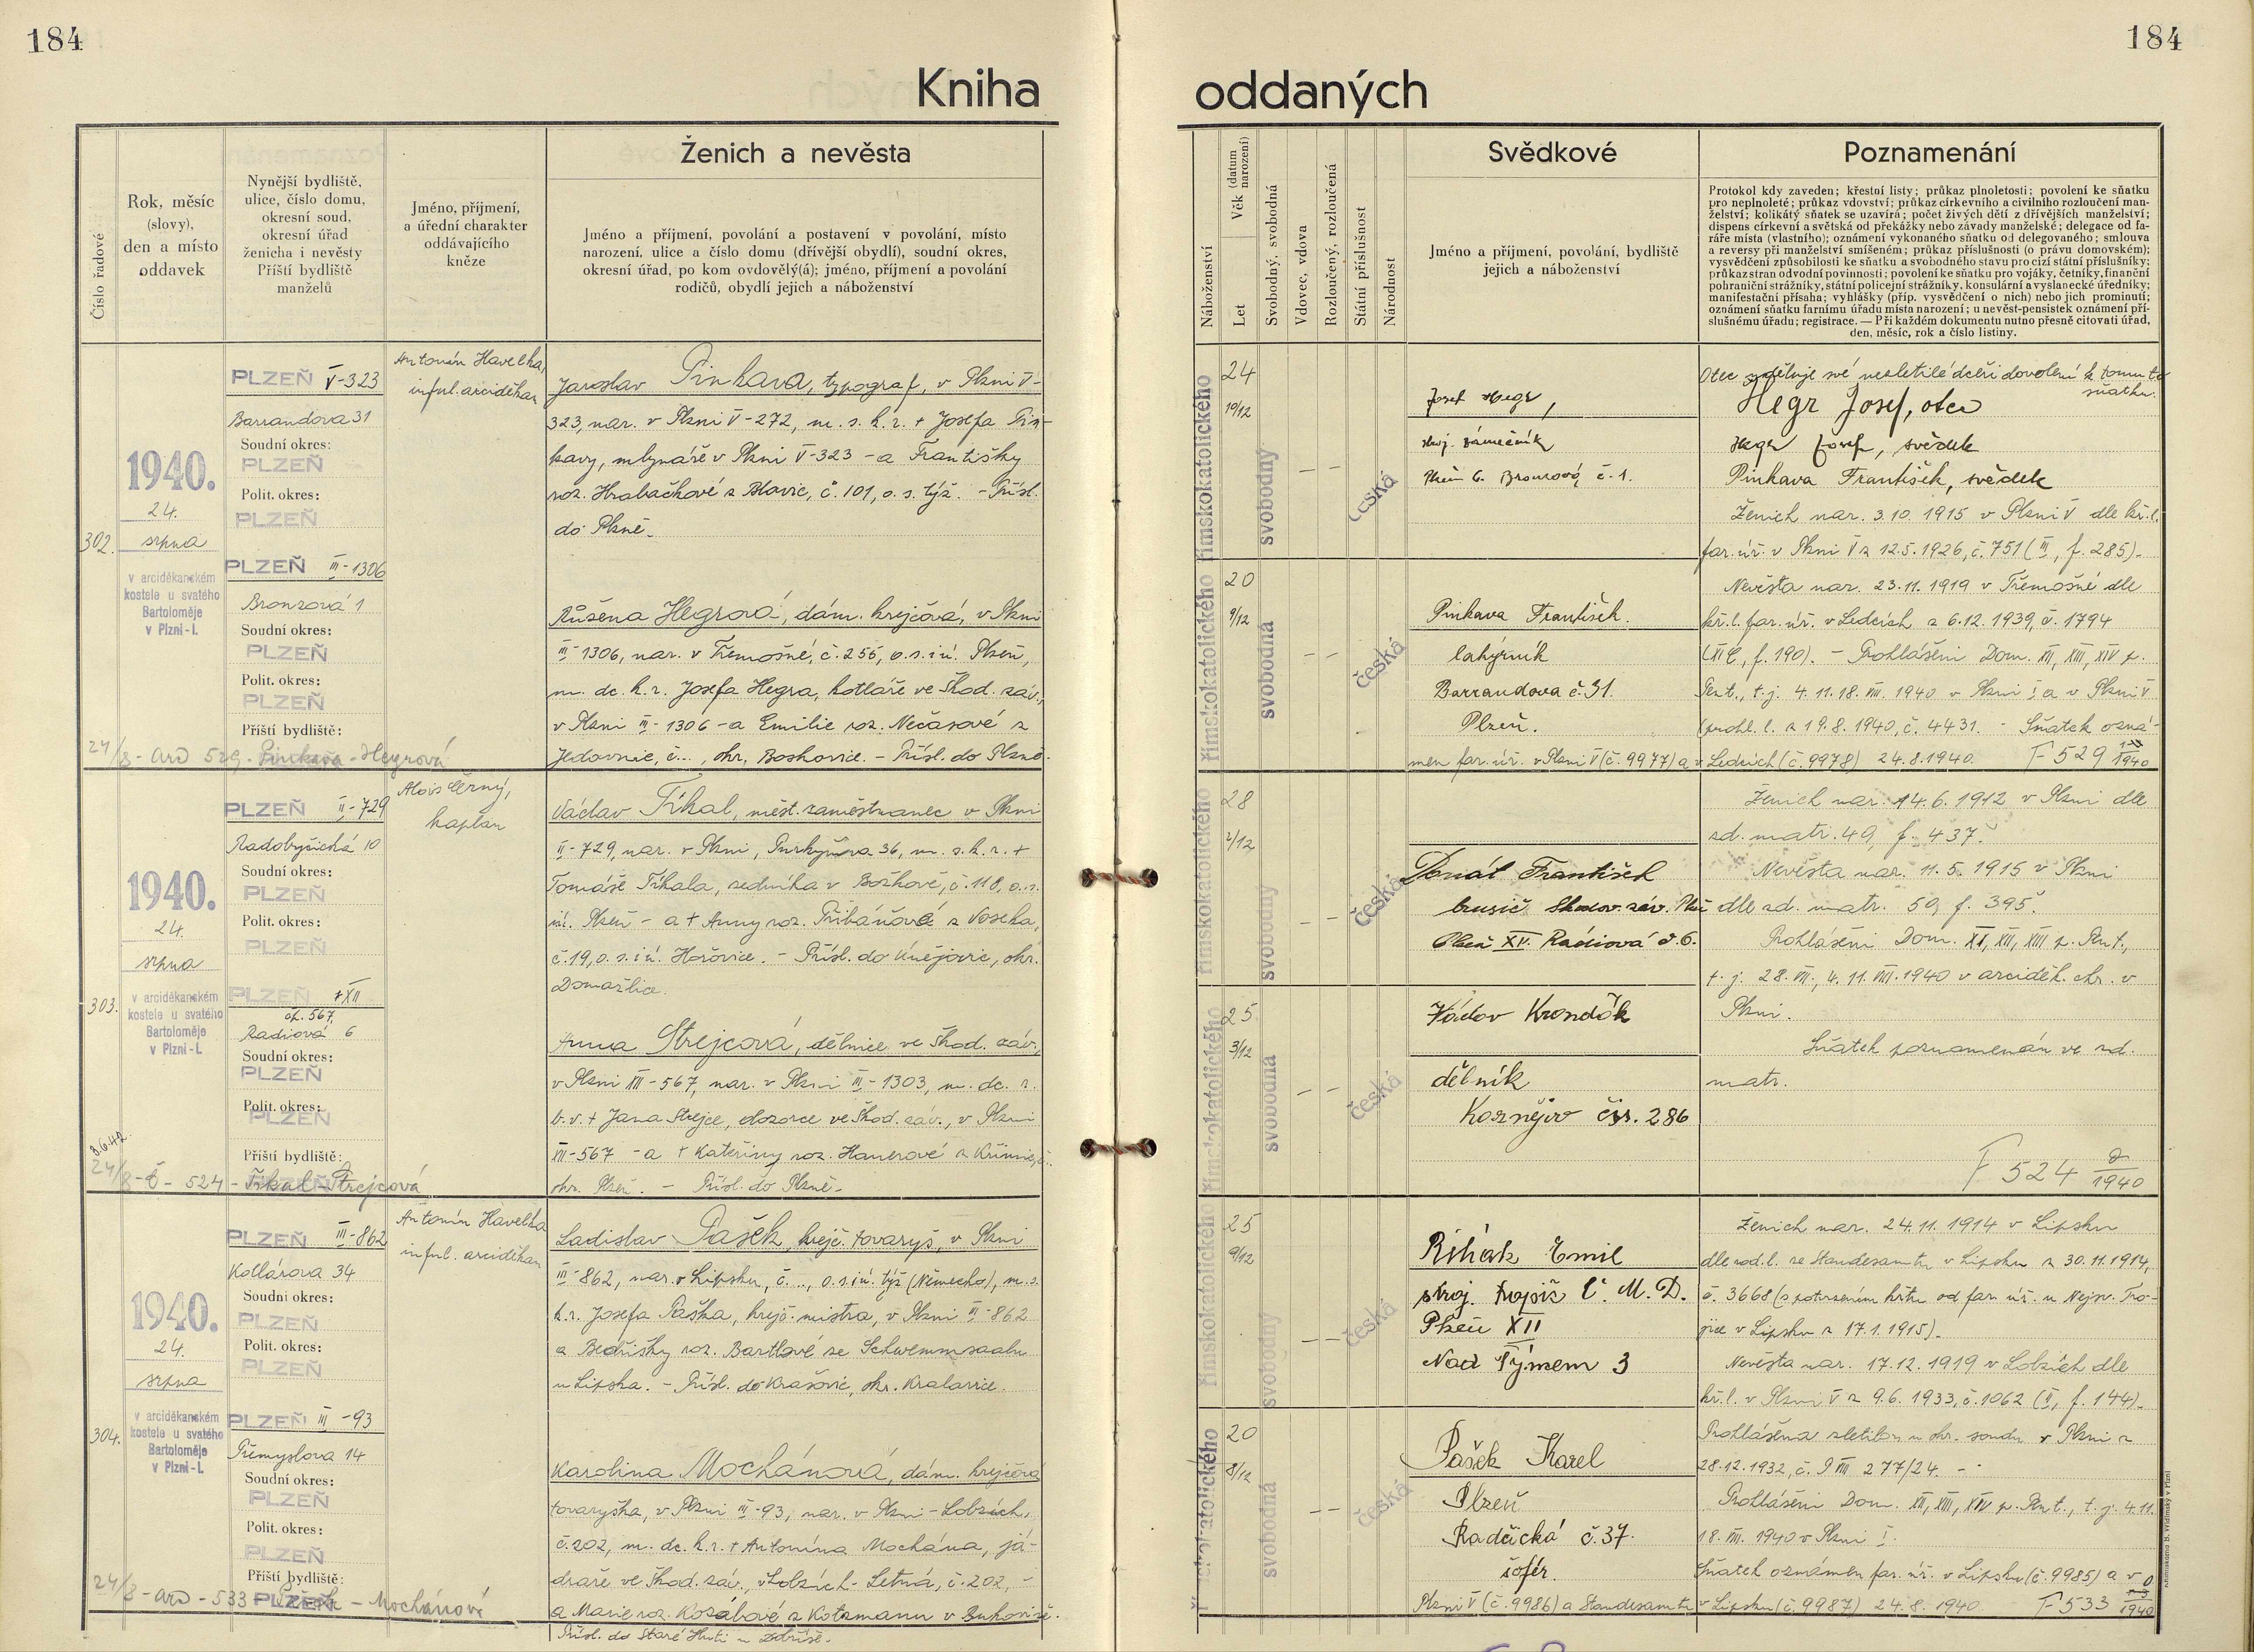 184
184
Kniha oddaných
Číslo řadové
Rok, měsíc
(slovy),
den a místo
oddavek
Nynější bydliště,
ulice, číslo domu,
okresní soud,
okresní úřad
ženicha i nevěsty
Příští bydliště
manželů
Jméno, příjmení,
a úřední charakter
oddávajícího
kněze
Ženich a nevěsta
Jméno a příjmení, povolání a postavení v povolání, místo
narození, ulice a číslo domu (dřívější obydlí), soudní okres,
okresní úřad, po kom ovdovělý(á); jméno, příjmení a povolání
rodičů, obydlí jejich a náboženství
Náboženství
Let
Věk (datum narození)
Svobodný, svobodná
Vdovec, vdova
Rozloučený, rozloučená
Státní příslušnost
Národnost
Svědkové
Jméno a příjmení, povolání, bydliště
jejich a náboženství
Poznamenání
Protokol kdy zaveden; křestní listy; průkaz plnoletosti; povolení ke sňatku
pro neplnoleté; průkaz vdovství; průkaz církevního a civilního rozloučení man-
želství; kolikátý sňatek se uzavírá; počet živých dětí z dřívějších manželství;
dispens církevní a světská od překážky nebo závady manželské; delegace od fa-
ráře místa (vlastního); oznámení vykonaného sňatku od delegovaného; smlouva
a reversy při manželství smíšeném; průkaz příslušnosti (o právu domovském);
vysvědčení způsobilosti ke sňatku a svobodného stavu pro cizí státní příslušníky;
průkaz stran odvodní povinnosti; povolení ke sňatku pro vojáky, četníky, finanční
pohraniční strážníky, státní policejní strážníky, konsulární a vyslanecké úředníky;
manifestační přísaha; vyhlášky (příp. vysvědčení o nich) nebo jich prominutí;
oznámení sňatku farnímu úřadu místa narození; u nevěst-pensistek oznámení pří-
slušnému úřadu; registrace. — Při každém dokumentu nutno přesně citovati úřad,
den, měsíc, rok a číslo listiny.
302.
1940.
24.
srpna
v arciděkanském
kostele u svatého
Bartoloměje
v Plzni-I.
PLZEŇ V-323
Barrandova 31
Soudní okres:
PLZEŇ
Polit. okres:
PLZEŇ
PLZEŇ III-1306
Bronzová 1
Soudní okres:
PLZEŇ
Polit. okres:
PLZEŇ
Příští bydliště:
24/8 - ard 529 - Pinkava - Hegrová
Antonín Havelka,
inful. arciděkan
Jaroslav Pinkava, typograf, v Plzni V-
323, nar. v Plzni V-272, m. s. k. r. + Josefa Pin-
kavy, mlynáře v Plzni V-323 - a Františky
roz. Hrabačkové z Blovic, č. 101, o. s. týž. - Přísl.
do Plzně.
Růžena Hegrová, dám. krejčová, v Plzni
III-1306, nar. v Třemošné, č. 255, o. s. i ú. Plzeň,
m. dc. k. r. Josefa Hegra, kotláře ve Škod. záv.,
v Plzni III-1306 - a Emilie roz. Nečasové z
Jedovnic, č..., okr. Boskovice. - Přísl. do Plzně.
římskokatolického
24
10/12
svobodný
česká
římskokatolického
20
9/12
svobodná
česká
Josef Hegr,
stroj. zámečník
Plzeň G. Bronzová č. 1.
Pinkava František.
lahýrník
Barrandova č. 31.
Plzeň.
Otec uděluje své nezletilé dceři dovolení k tomuto
sňatku.
Hegr Josef, otec
Hegr Josef, svědek
Pinkava František, svědek
Ženich nar. 3.10. 1915 v Plzni V dle kř. l.
far. úř. v Plzni V z 12.5. 1926, č. 751 (III, f. 285).
Nevěsta nar. 23.11. 1919 v Třemošné dle
kř. l. far. úř. v Ledcích z 6.12. 1939, č. 1794
f. 190). - Prohlášeni Dom. XII, XIII, XIV p.
Pent., t. j. 4. 11. 18. VIII. 1940 v Plzni I a v Plzni V
(prohl. l. z 19.8. 1940, č. 4431. - Sňatek ozná-
men far. úř. v Plzni V (č. 9977) a v Ledcích (č. 9978) 24.8. 1940. F 529 1940
303.
1940.
24.
srpna
v arciděkanském
kostele u svatého
Bartoloměje
v Plzni-I.
PLZEŇ II-729
Radobyčická 10
Soudní okres:
PLZEŇ
Polit. okres:
PLZEŇ
PLZEŇ XII
čp. 567,
Radiová 6
Soudní okres:
PLZEŇ
Polit. okres:
PLZEŇ
Příští bydliště:
3.6.42.
24/8 - č - 524 - Tikal - Strejcová
Alois Černý,
kaplan
Václav Tikal, měst. zaměstnanec v Plzni
II-729, nar. v Plzni, Purkyňova 36, m. s. k. r. +
Tomáše Tikala, zedníka v Božkově, č. 118, o. s.
i ú. Plzeň - a + Anny roz. Pribáňové z Voseka,
č. 19, o. s. i ú. Hořovice. - Přísl. do Kvějovic, okr.
Domažlice.
Anna Strejcová, dělnice ve Škod. záv.,
v Plzni XII-567, nar. v Plzni III-1303, m. dc. r.
b. v. + Jana Strejce, dozorce ve Škod. záv., v Plzni
XII-567 - a + Kateřiny roz. Hanerové z Křimic, č.
okr. Plzeň. - Přísl. do Plzně.
římskokatolického
28
2/12
svobodný
česká
římskokatolického
25
3/12
svobodná
česká
Donát František
brusič Škodov. záv. Plzeň
Plzeň XV. Radiová č. 6.
Václav Krondák
dělník
čís. 286
Ženich nar. 14.6. 1912 v Plzni dle
zd. matr. 49, f. 437.
Nevěsta nar. 11.5. 1915 v Plzni
dle zd. matr. 50, f. 395.
Prohlášeni Dom. XI, XII, XIII p. Pent.,
t. j. 28. VII., 4. 11. VIII. 1940 v arciděk. chr. v
Plzni.
Sňatek poznamenán ve zd.
matr.
F 524 1940
304.
1940.
24.
srpna
v arciděkanském
kostele u svatého
Bartoloměje
v Plzni-I.
PLZEŇ III-862
Kollárova 34
Soudní okres:
PLZEŇ
Polit. okres:
PLZEŇ
PLZEŇ III-93
Přemyslova 14
Soudní okres:
PLZEŇ
Polit. okres:
PLZEŇ
Příští bydliště:
PLZEŇ
24/8 - ard - 533 - Pašek - Mochánová
Antonín Havelka
inful. arciděkan
Ladislav Pašek, krejč. tovaryš, v Plzni
III-862, nar. v Lipsku, č..., o. s. i ú. týž (Německo), m. s.
k. r. Josefa Paška, krejč. mistra, v Plzni III-862
a Bedřišky roz. Bartlové ze Schwemmsaalu
u Lipska. - Přísl. do Krašovic, okr. Kralovice.
Karolina Mochánová, dám. krejčová
tovaryška, v Plzni III-93, nar. v Plzni-Lobzích,
č. 202, m. dc. k. r. + Antonína Mochána, já-
draře ve Škod. záv., v Lobzích-Letná, č. 202, -
a Marie roz. Kozábové z Kotzmanu v Bukovině.
Přísl. do Staré Huti u Dobříše.
římskokatolického
25
9/12
svobodný
česká
římskokatolického
20
8/12
svobodná
česká
Řihák Emil
stroj. topič Č. M. D.
Plzeň XII
Nad Týmem 3
Pašek Karel
Plzeň
Radčická č. 37.
šofér.
Ženich nar. 24.11. 1914 v Lipsku
dle rod. l. ze Standesamtu v Lipsku z 30.11.1914,
č. 3668 (s potvrzením křtu od far. úř. u Nejsv. Tro-
jice v Lipsku z 17.1. 1915).
Nevěsta nar. 17.12. 1919 v Lobzích dle
kř. l. v Plzni V z 9.6. 1933, č. 1062 (II, f. 144).
Prohlášena zletilou u okr. soudu v Plzni z
28.12.1932, č. P VIII 277/24. -
Prohlášeni Dom. XII, XIII, XIV p. Pent., t. j. 4.11.
18. VIII. 1940 v Plzni I.
Sňatek oznámen far. úř. v Lipsku (č. 9985) a v
Plzni V (č. 9986) a Standesamtu v Lipsku (č. 9987) 24.8. 1940. F 533 1940
Knihtiskárna B. Wildinský v Plzni